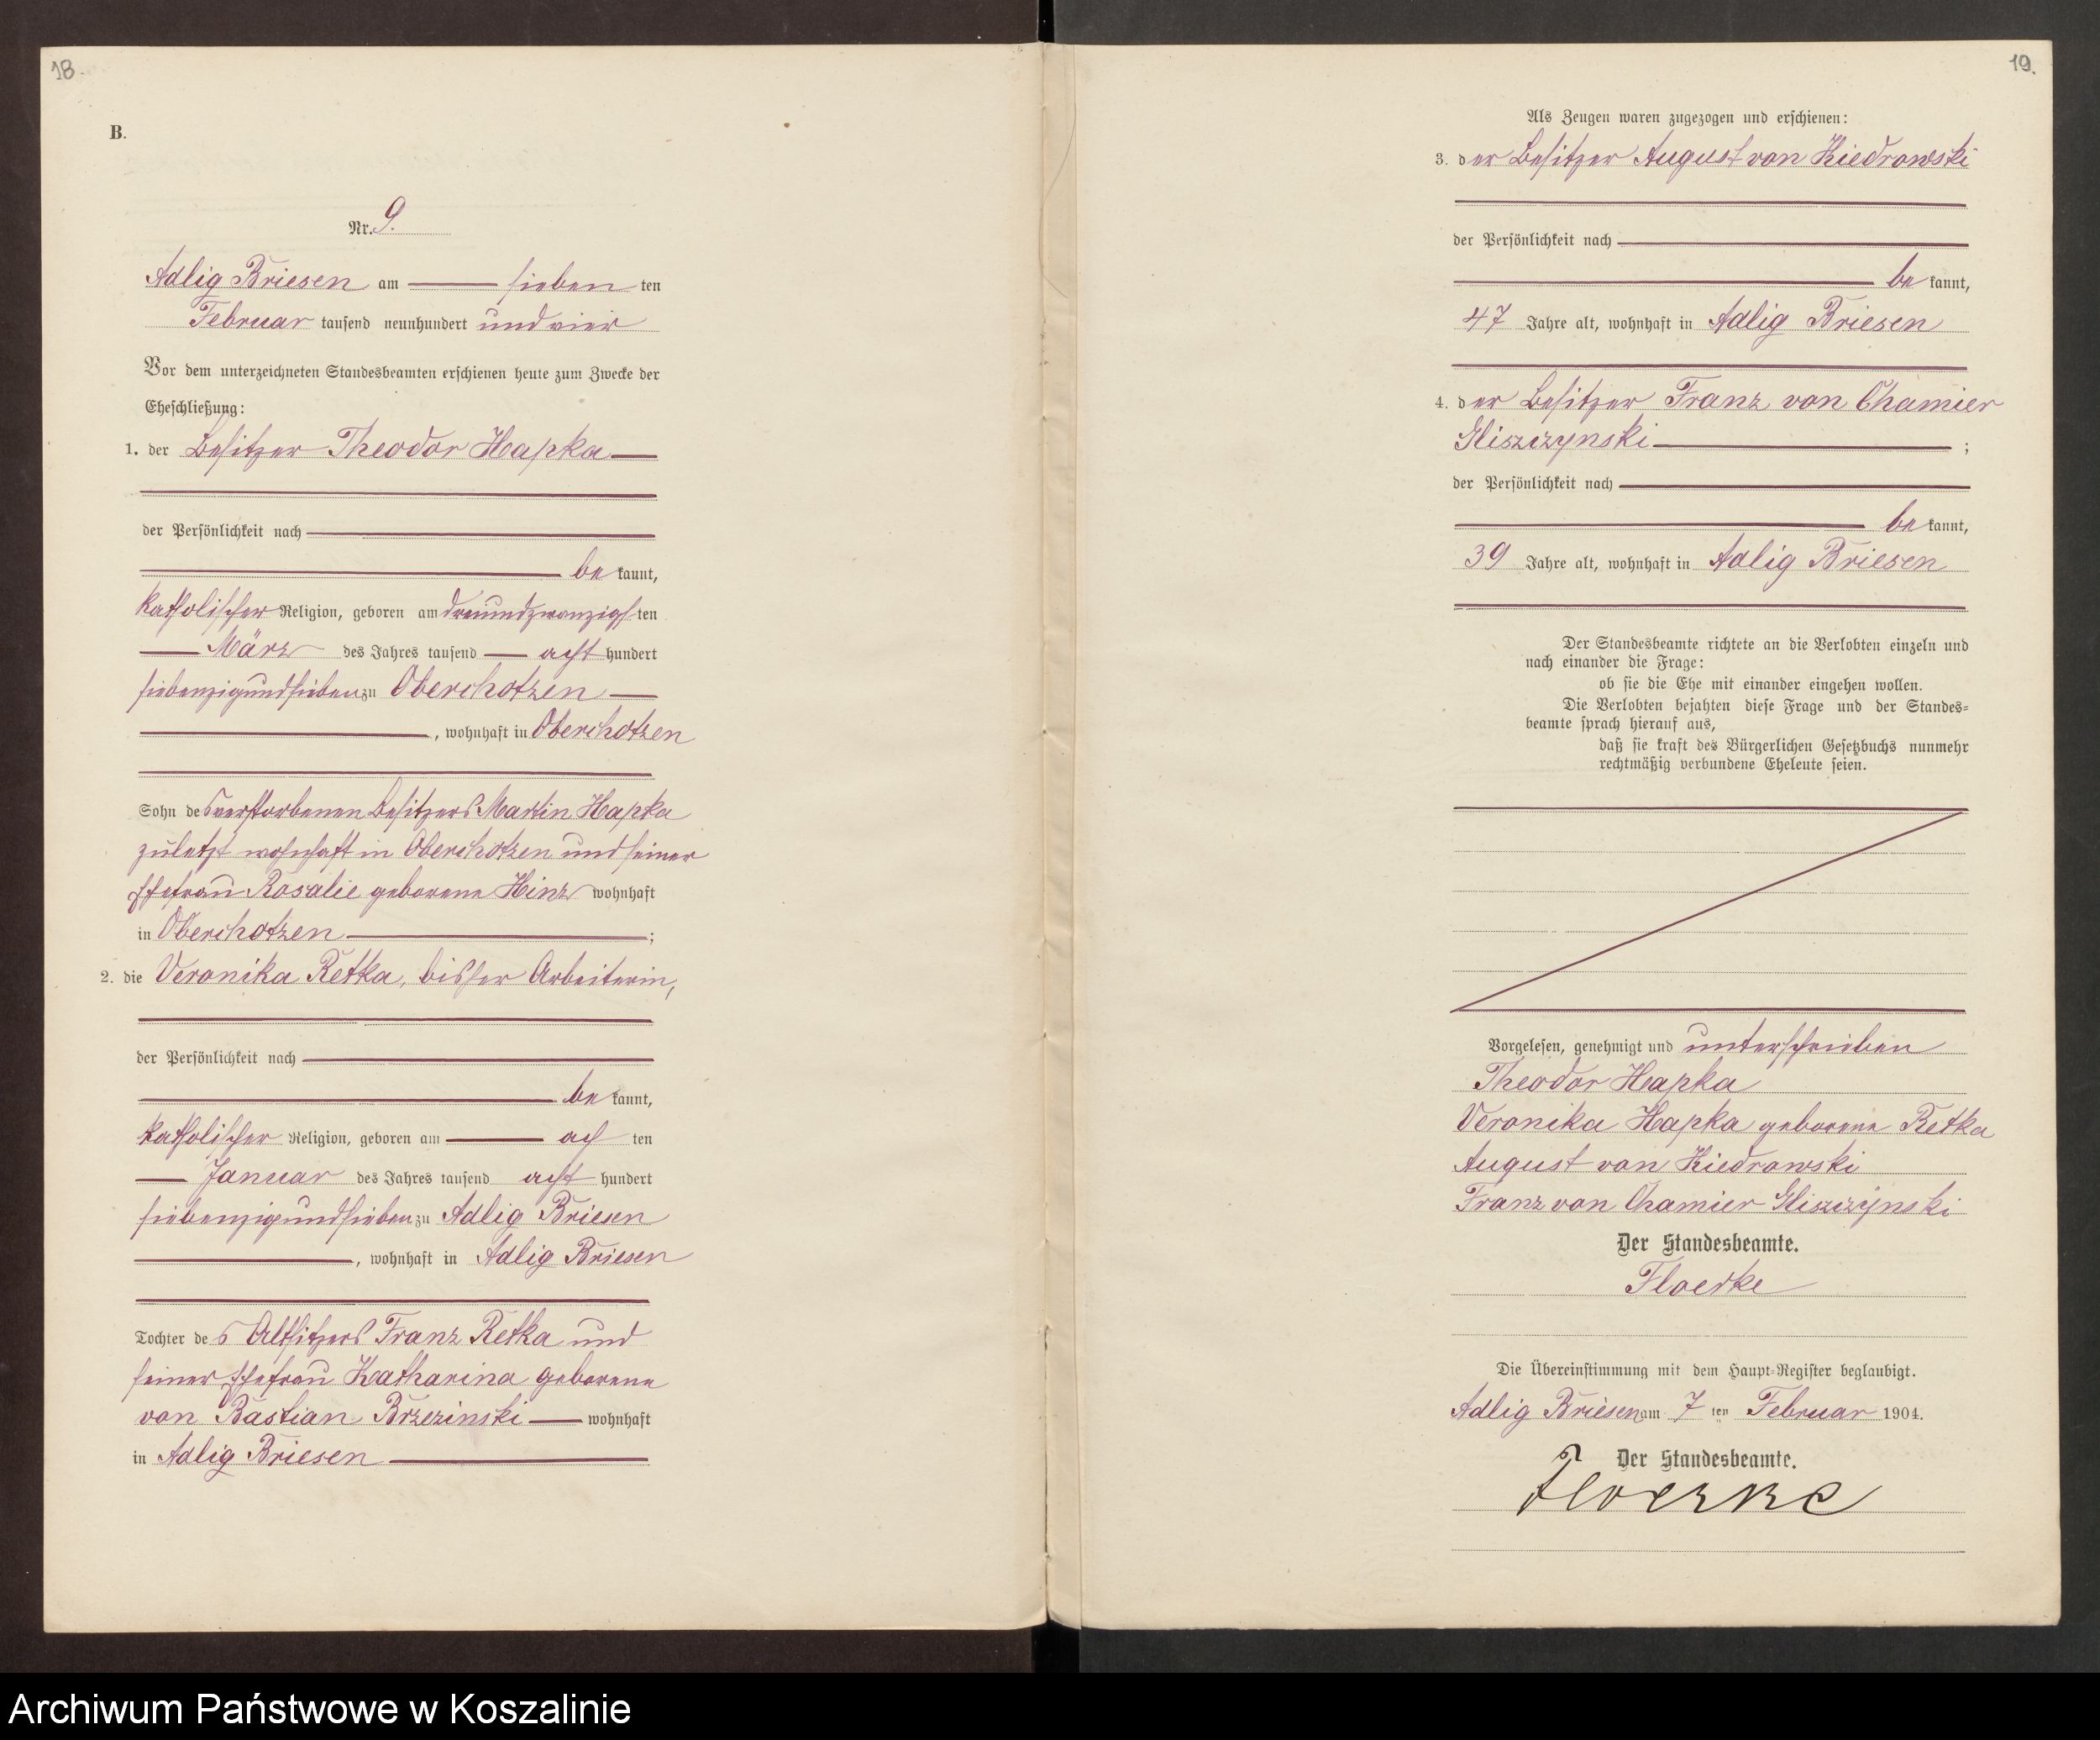 18.
B.
Nr. 9.
Adlig Briesen am sieben ten
Februar tausend neunhundert und vier
Vor dem unterzeichneten Standesbeamten erschienen heute zum Zwecke der
Eheschließung:
1. der Besitzer Theodor Hapka
der Persönlichkeit nach
be kannt,
katholischer Religion, geboren am dreiundzwanzigs ten
März des Jahres tausend acht hundert
siebenzigundsieben zu Oberchotzen
, wohnhaft in Oberchotzen
Sohn des verstorbenen Besitzers Martin Hapka
zuletzt wohnhaft in Oberchotzen und seiner
Ehefrau Rosalie geborene Hinz wohnhaft
in Oberchotzen ;
2. die Veronika Retka, bisher Arbeiterin,
der Persönlichkeit nach
be kannt,
katholischer Religion, geboren am ach ten
Januar des Jahres tausend acht hundert
siebenzigundsieben zu Adlig Briesen
, wohnhaft in Adlig Briesen
Tochter des Altsitzers Franz Retka und
seiner Ehefrau Katharina geborene
von Bastian Brzezinski wohnhaft
in Adlig Briesen
19.
Als Zeugen waren zugezogen und erschienen:
3. der Besitzer August von Kiedrowski
der Persönlichkeit nach
be kannt,
47 Jahre alt, wohnhaft in Adlig Briesen
4. der Besitzer Franz von Chamier
Gliszczynski ;
der Persönlichkeit nach
be kannt,
39 Jahre alt, wohnhaft in Adlig Briesen
Der Standesbeamte richtete an die Verlobten einzeln und
nach einander die Frage:
ob sie die Ehe mit einander eingehen wollen.
Die Verlobten bejahten diese Frage und der Standes=
beamte sprach hierauf aus,
daß sie kraft des Bürgerlichen Gesetzbuchs nunmehr
rechtmäßig verbundene Eheleute seien.
Vorgelesen, genehmigt und unterschrieben
Theodor Hapka
Veronika Hapka geborene Retka
August von Kiedrowski
Franz von Chamier Gliszczynski
Der Standesbeamte.
Floerke
Die Übereinstimmung mit dem Haupt=Register beglaubigt.
Adlig Briesen am 7 ten Februar 1904.
Der Standesbeamte.
Floerke
Archiwum Państwowe w Koszalinie